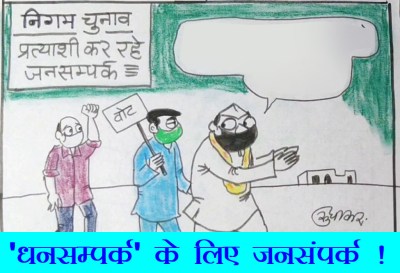 निगम चुनाव
प्रत्याशी कर रहे
जनसम्पर्क
वोट
सुधाकर
'धनसम्पर्क' के लिए जनसंपर्क !